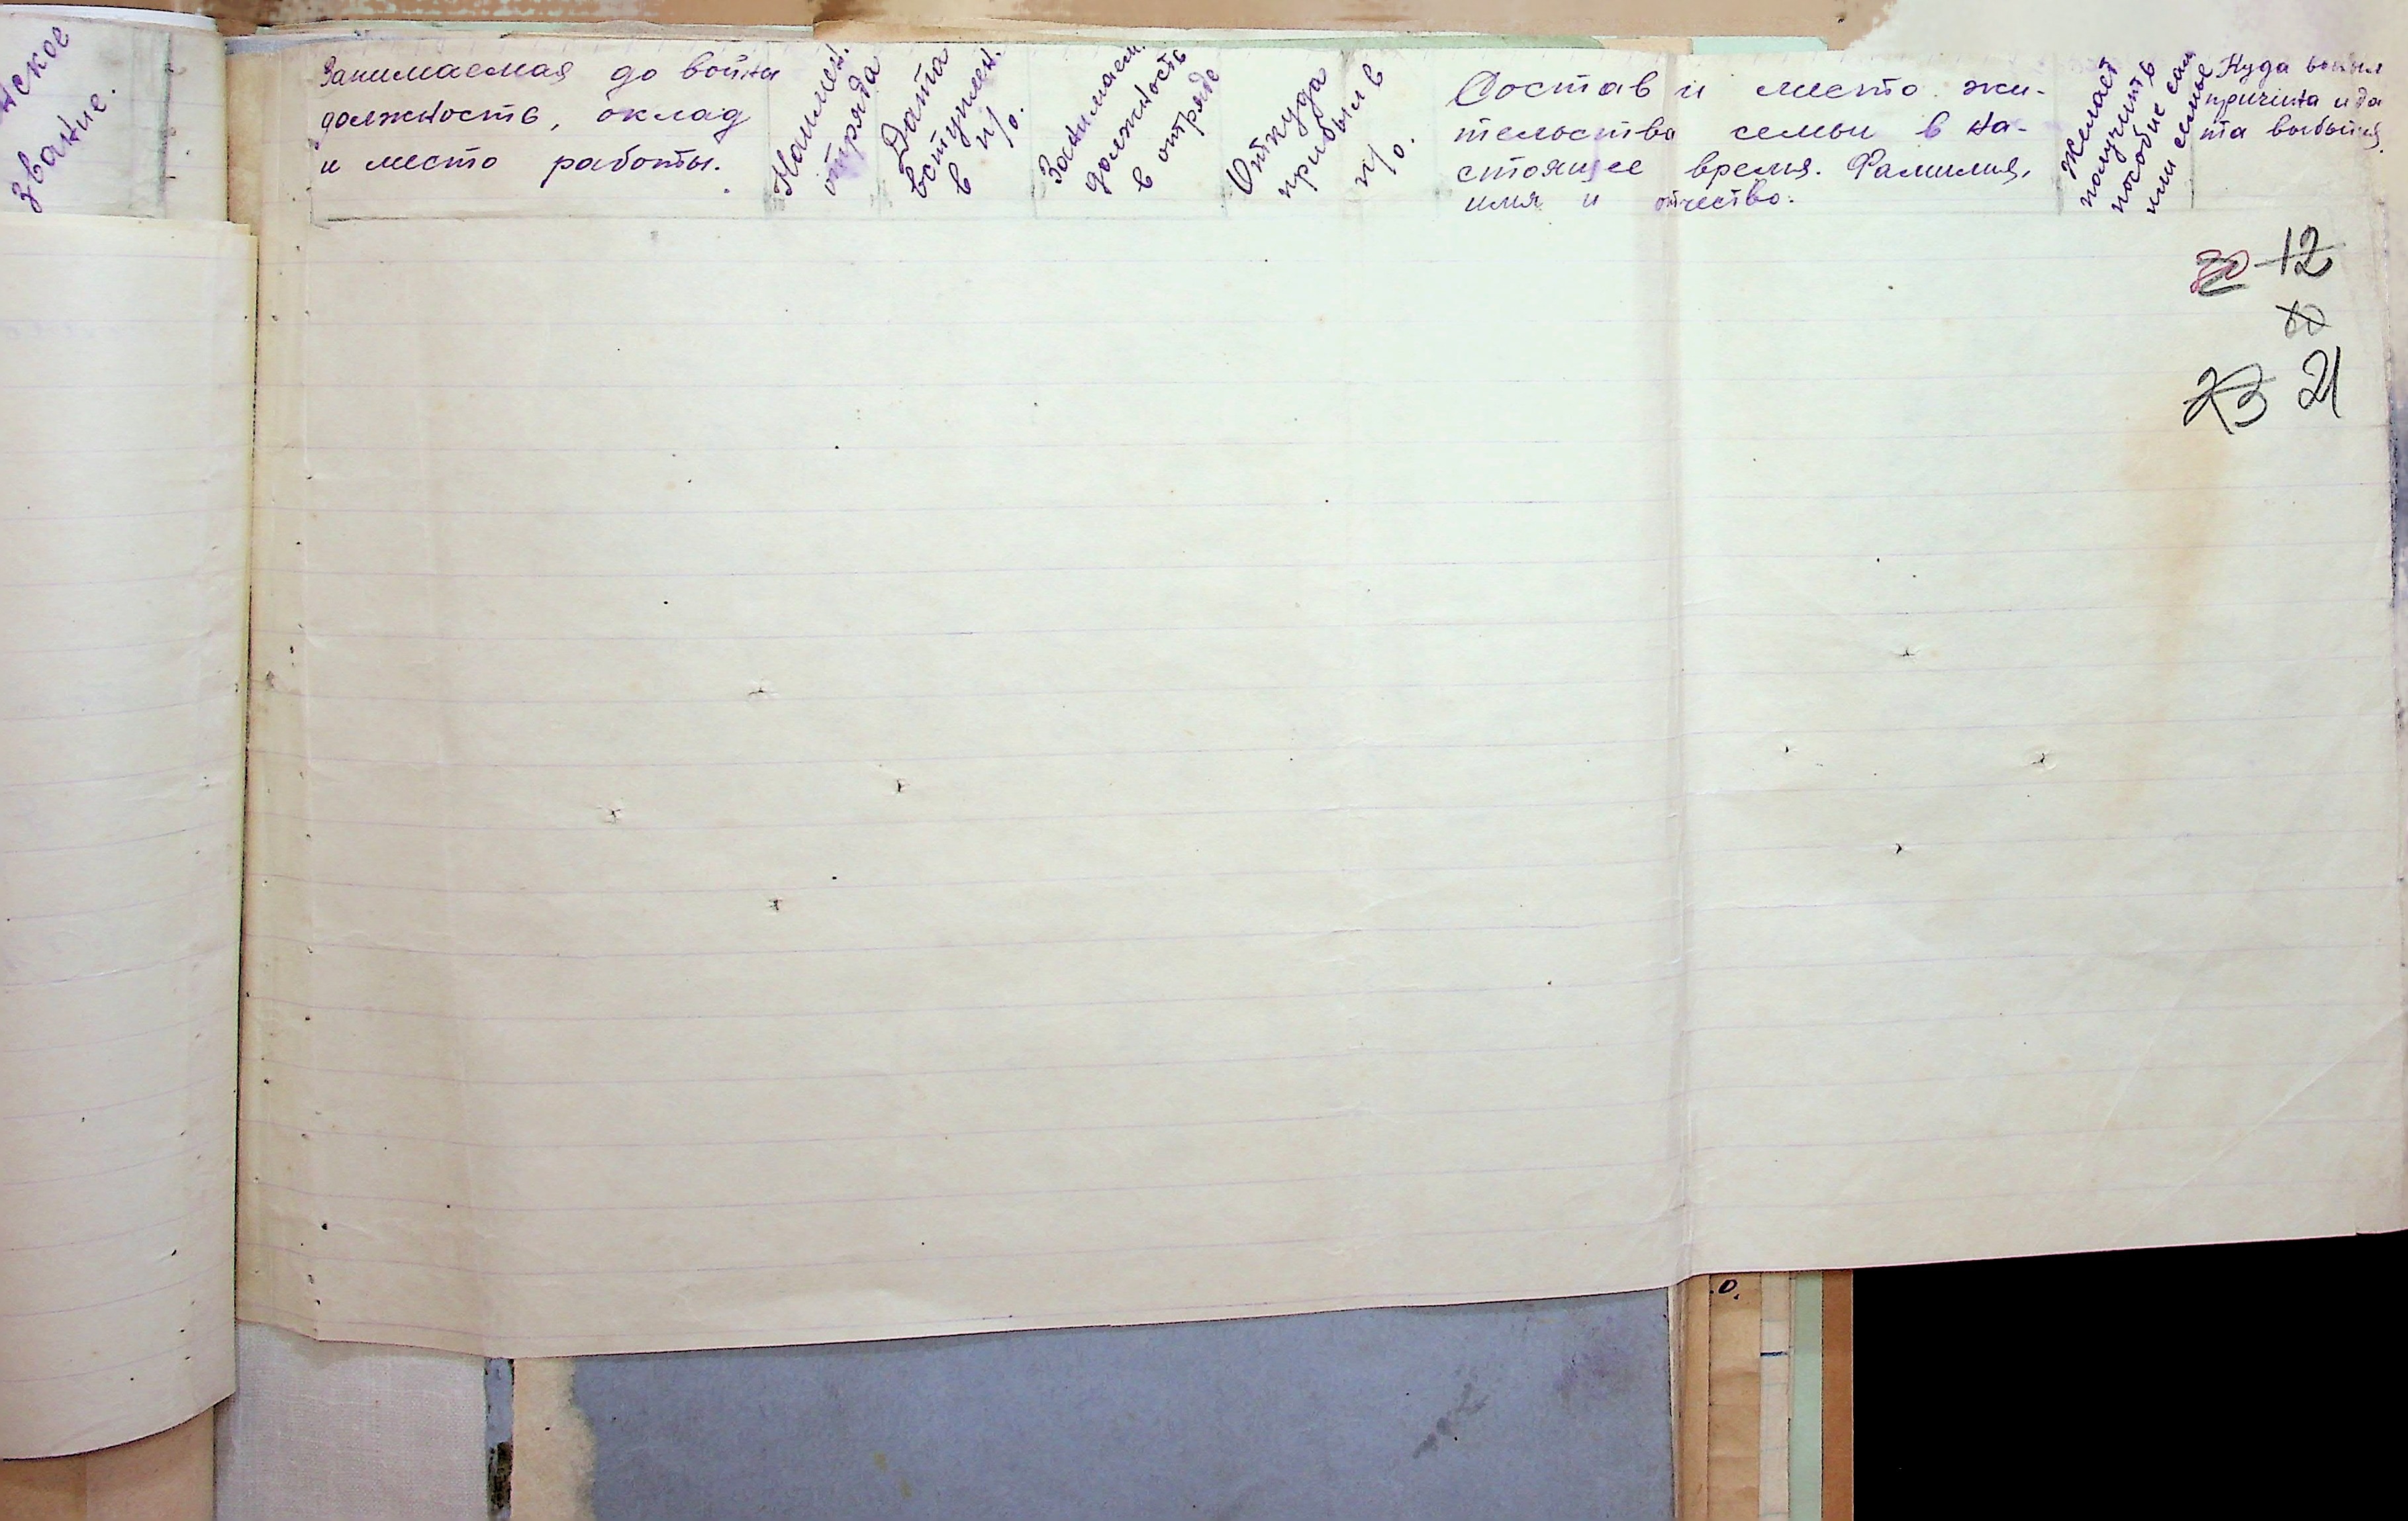 звание.
Занимаемая до войны
должность, оклад
и место работы.
Наимен.
отряда
Дата
вступлен.
в п/о.
Занимаем.
должность
в отряде
Откуда
прибыл в
п/о.
Состав и место жи-
тельства семьи в на-
стоящее время. Фамилия,
имя и отчество.
Желает
получить
пособие сам
или семье
Куда выбыл
причина и да
та выбытия.
12
23 21
о.